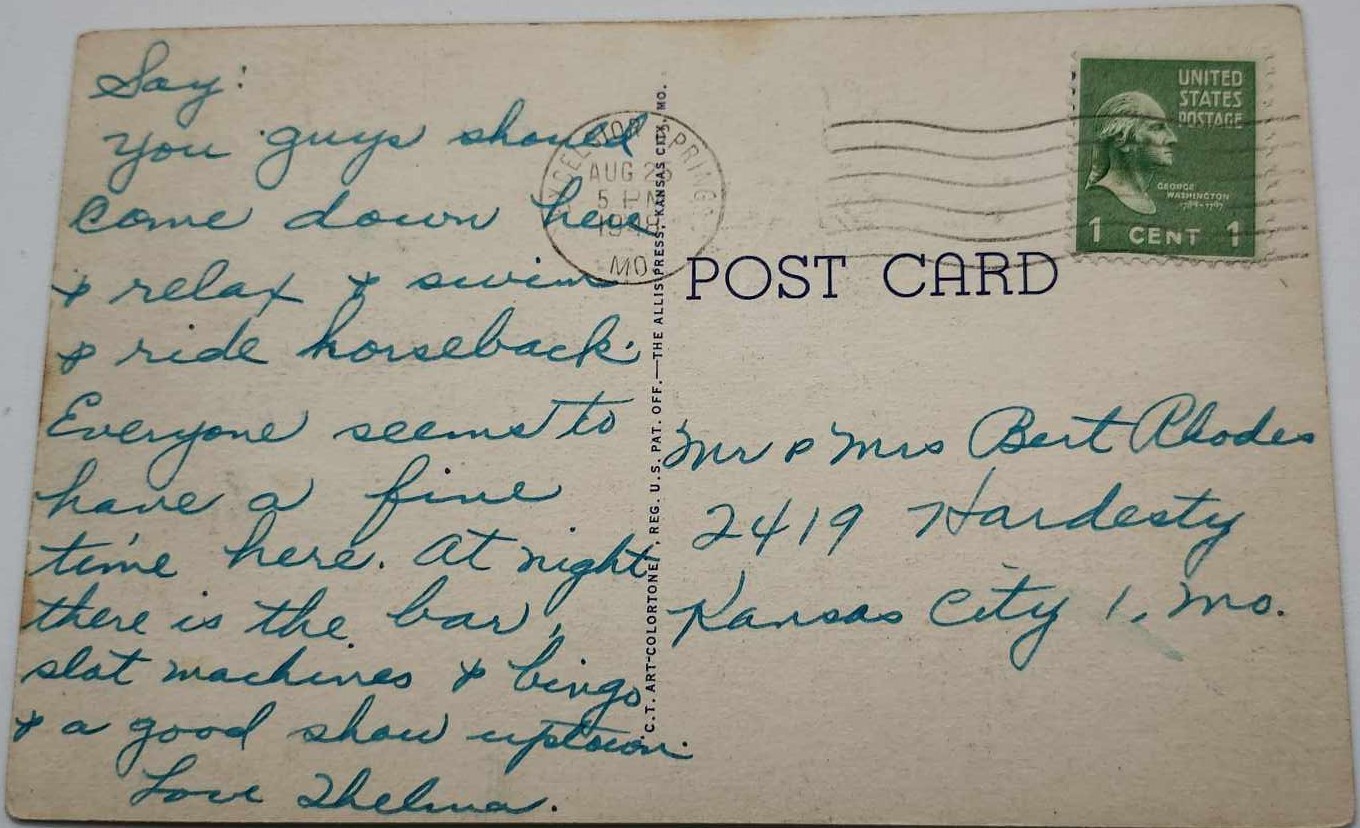 Say:
You guys should
come down here
& relax & swim
& ride horseback.
Everyone seems to
have a fine
time here. At night
there is the bar,
slot machines & bingo
& a good show uptown.
Love Thelma.
EXCELSIOR SPRINGS
AUG
5 PM
MO.
C.T. ART-COLORTONE, REG. U.S. PAT. OFF.—THE ALLIS PRESS, KANSAS CITY, MO.
POST CARD
UNITED
STATES
POSTAGE
GEORGE
WASHINGTON
1789-1797
1 CENT 1
Mr & Mrs Bert Rhodes
2419 Hardesty
Kansas City 1, Mo.